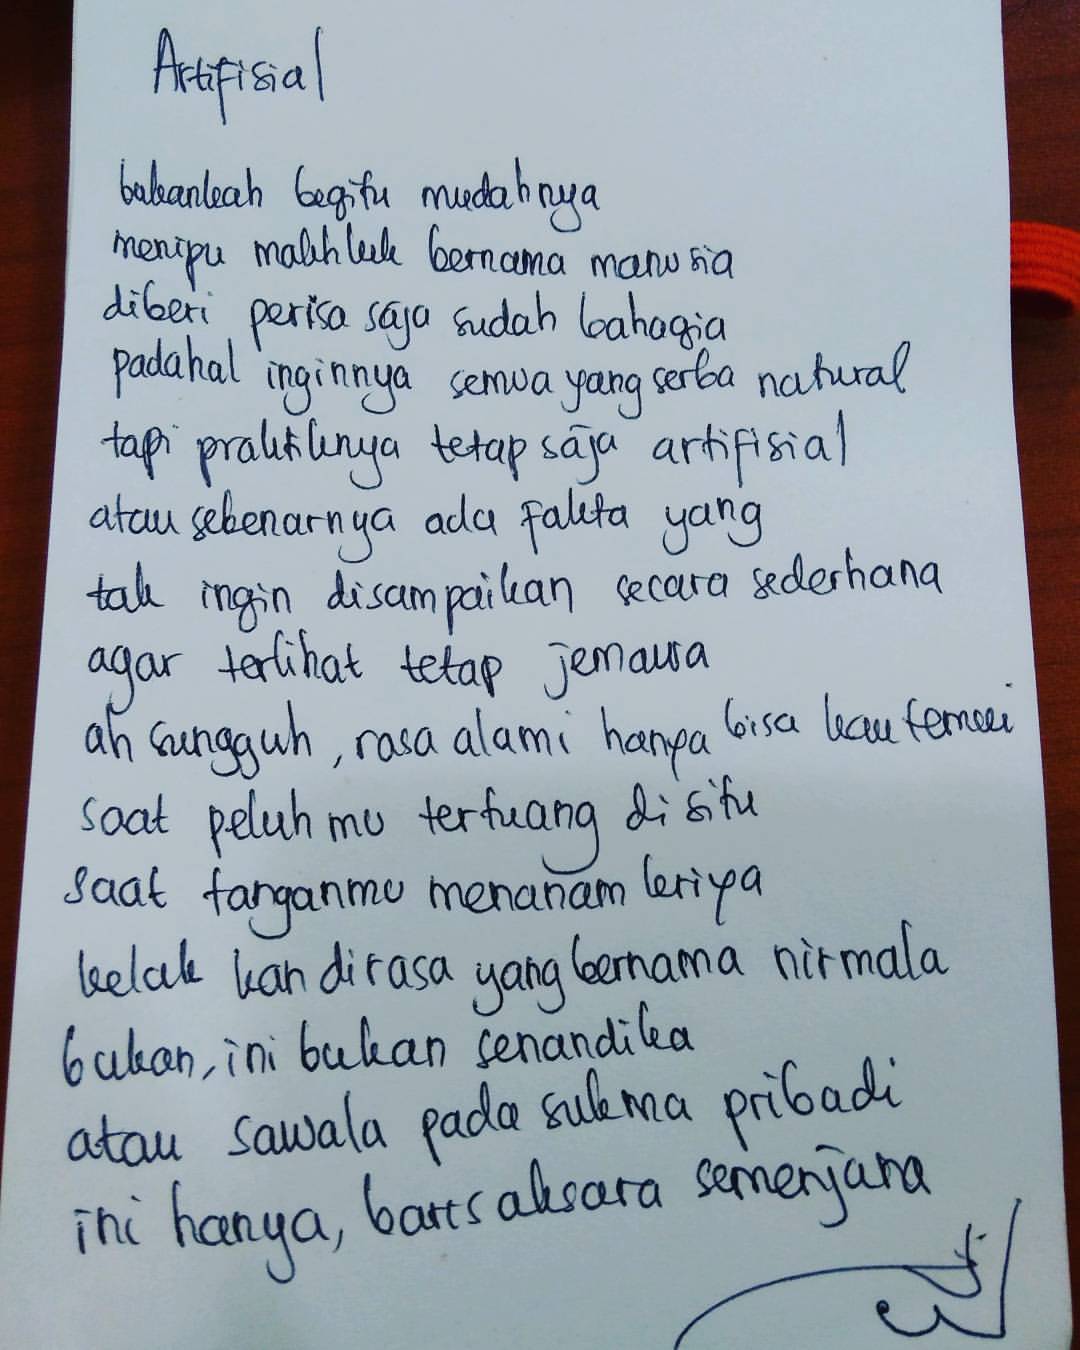 Artifisial
bukankah begitu mudahnya
menipu makhluk bernama manusia
diberi perisa saja sudah bahagia
padahal inginnya semua yang serba natural
tapi praktiknya tetap saja artifisial
atau sebenarnya ada fakta yang
tak ingin disampaikan secara sederhana
agar terlihat tetap jemawa
ah sungguh, rasa alami hanya bisa kau temui
saat peluhmu tertuang di situ
saat tanganmu menanam kriya
kelak kan dirasa yang bernama nirmala
bukan, ini bukan senandika
atau sawala pada sukma pribadi
ini hanya, baris aksara semenjana